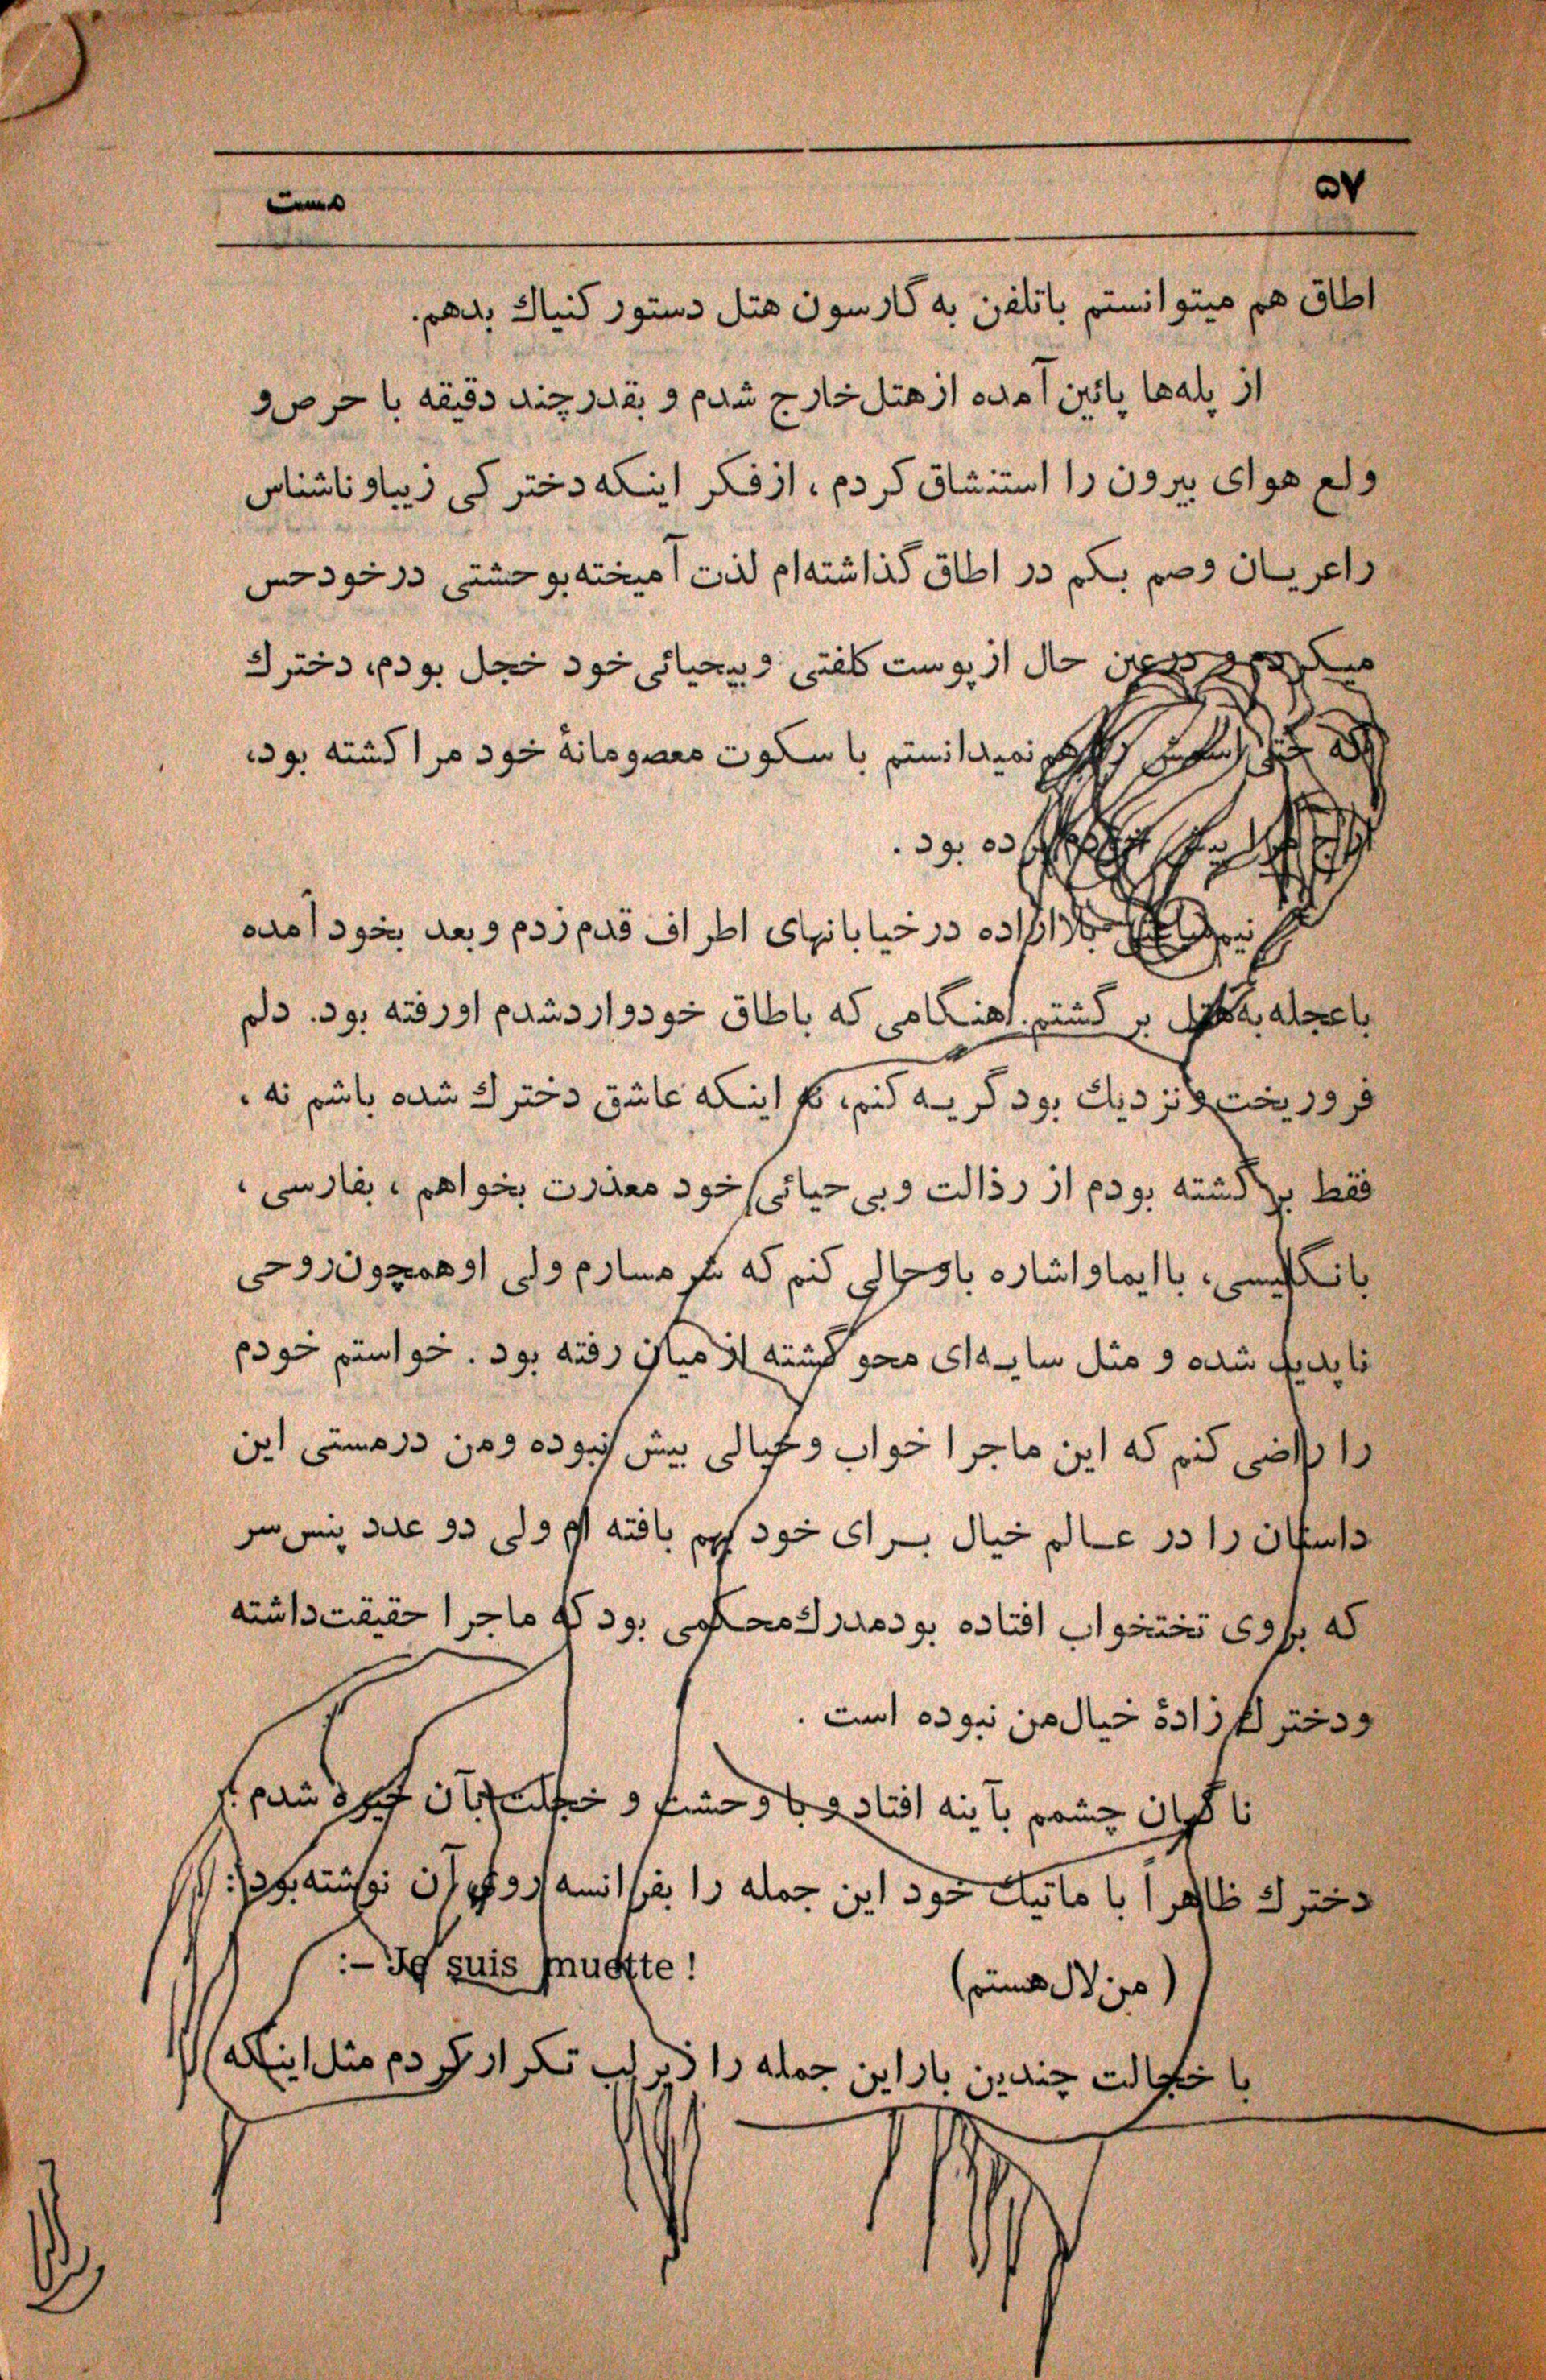 ۵۷
مست
اطاق هم میتوانستم باتلفن به گارسون هتل دستور کنیاك بدهم.
از پله‌ها پائین آمده از هتل خارج شدم و بقدر چند دقیقه با حرص و
ولع هوای بیرون را استنشاق کردم ، از فکر اینکه دختر کی زیبا و ناشناس
را عریان وصم بکم در اطاق گذاشته‌ام لذت آمیخته بوحشتی در خود حس
میکردم و درعین حال از پوست کلفتی و بیحیائی خود خجل بودم، دخترك
که حتی اسمش را هم نمیدانستم با سکوت معصومانهٔ خود مرا کشته بود،
ده بود .
بلااراده در خیابانهای اطراف قدم زدم و بعد بخود آمده
باعجله به هتل بر گشتم. هنگامی که باطاق خود وارد شدم او رفته بود. دلم
فرو ریخت و نزدیك بود گریه کنم، نه اینکه عاشق دخترك شده باشم نه ،
فقط بر گشته بودم از رذالت و بی حیائی خود معذرت بخواهم ، بفارسی ،
بانگلیسی، با ایما و اشاره باو حالی کنم که شرمسارم ولی او همچون روحی
ناپدید شده و مثل سایه‌ای محو گشته از میان رفته بود . خواستم خودم
را راضی کنم که این ماجرا خواب و خیالی بیش نبوده و من در مستی این
داستان را در عالم خیال برای خود بهم بافته ام ولی دو عدد پنس سر
که بروی تختخواب افتاده بود مدرك محکمی بود که ماجرا حقیقت داشته
و دخترك زادهٔ خیال من نبوده است .
ناگهان چشمم بآینه افتاد و با وحشت و خجلت بآن خیره شدم .
دخترك ظاهراً با ماتیك خود این جمله را بفرانسه روی آن نوشته بود :
:– Je suis muette !
( من لال هستم)
با خجالت چندین بار این جمله را زیر لب تکرار کردم مثل اینکه